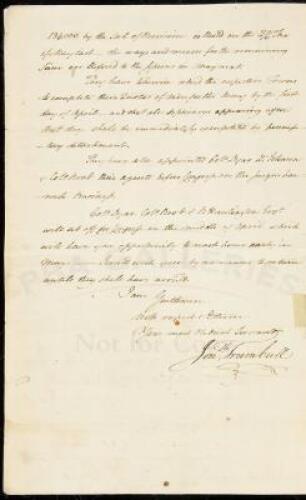 134,000 by the Sale of Provisions collected on the 2/6 Tax
of May last — the ways and means for the remaining
Sum are deferred to the session in May next.
They have likewise ordered the respective Towns
to complete their Quotas of Men for the Army by the first
day of April, and that all deficiencies appearing after
that they shall be immediately completed by peremp-
tory detachment.
They have also appointed Colº Dyer Dr Johnson
& Colº Root their agents before Congress on the
Colº Dyer, Colº Root & Esqʳ
will set off for Congress in the middle of April which
will have you opportunity to meet down early in
May — until they shall have arrived.
I am Gentlemen
with respect & Esteem
Your most Obedient Servant
Jonᵗʰ Trumbull
Not for Co